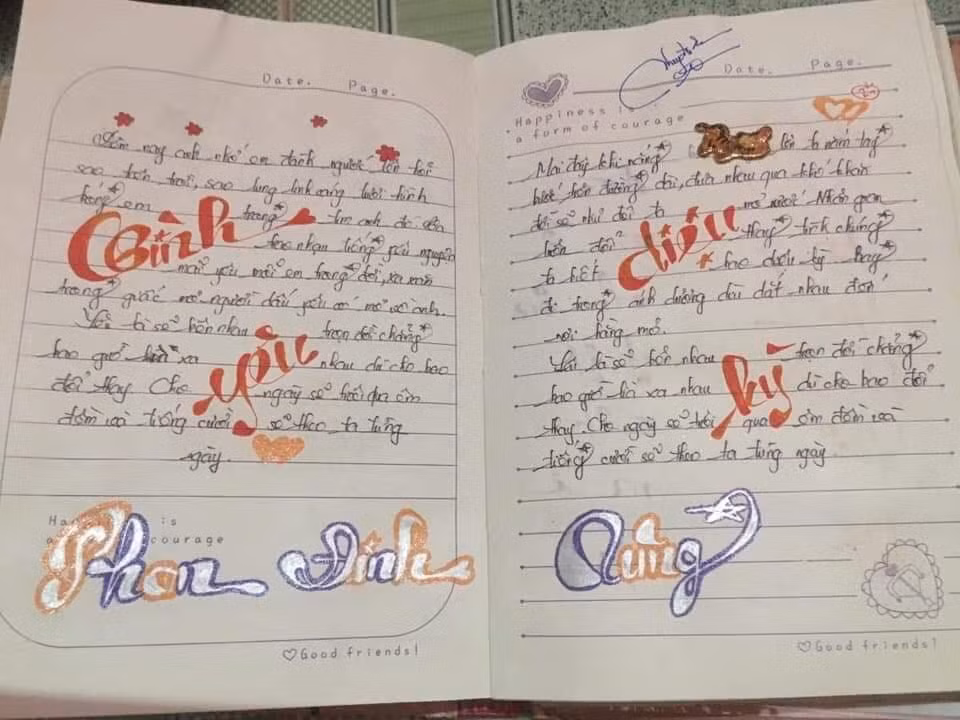 Date. Page.
Đêm nay anh nhớ em đành ngước lên trời
sao trên trời, sao lung linh sao tình
trong em trong tim anh đã
Tình
mãi yêu mỗi em trong đời,
trong giấc mơ người dấu yêu có mơ về anh.
Yêu là sẽ bên nhau trọn đời chẳng
bao giờ xa nhau dù cho bao
yêu
đổi thay Cho ngày sẽ trôi qua êm
đềm và tiếng cười sẽ theo ta từng
ngày.
Happiness is
a form of courage
Phan Đình
♡Good friends!
Date. Page.
Happiness is
a form of courage
Mai đây khi nắng lên ta nắm tay
bước trên đường dài, đưa nhau qua khó khăn
đời sẽ như đôi ta mơ ước Nhân gian
diệu
bên đời thay tình chúng
ta hết bao diệu kỳ hay
đi trong ánh dương dìu dắt nhau đến
nơi hằng mơ.
Yêu là sẽ bên nhau trọn đời chẳng
kỳ
bao giờ lìa xa nhau dù cho bao đổi
thay. Cho ngày sẽ trôi qua êm đềm và
tiếng cười sẽ theo ta từng ngày
Tùng
♡Good friends!